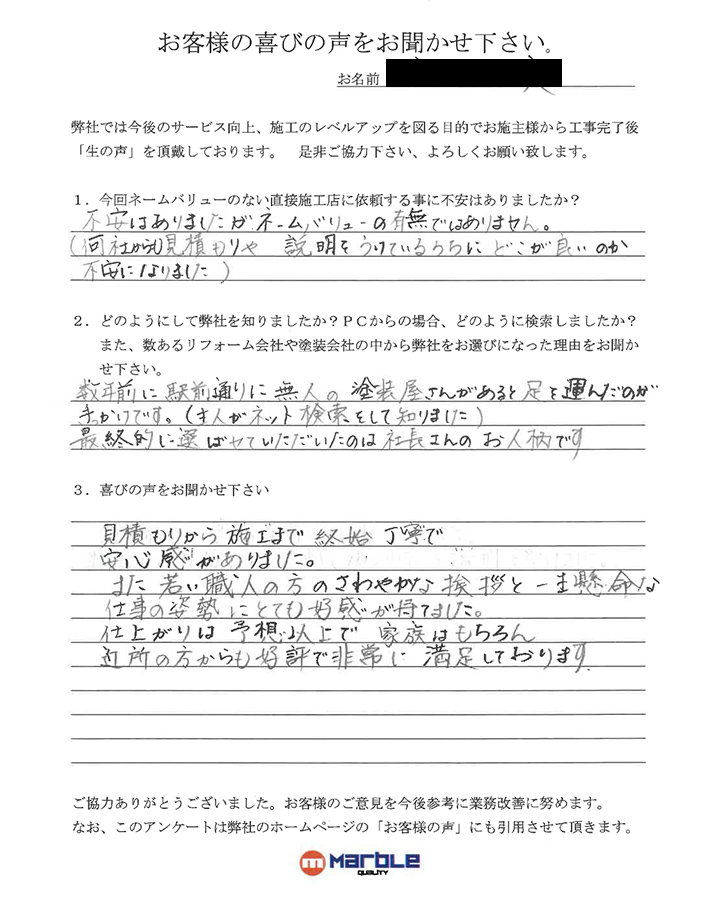 お客様の喜びの声をお聞かせ下さい。
お名前
弊社では今後のサービス向上、施工のレベルアップを図る目的でお施主様から工事完了後
「生の声」を頂戴しております。　是非ご協力下さい、よろしくお願い致します。
１．今回ネームバリューのない直接施工店に依頼する事に不安はありましたか？
不安はありましたがネームバリューの有無ではありません。
(何社からも見積もりや　説明をうけているうちに どこが良いのか
不安になりました )
２．どのようにして弊社を知りましたか？ＰＣからの場合、どのように検索しましたか？
また、数あるリフォーム会社や塗装会社の中から弊社をお選びになった理由をお聞か
せ下さい。
数年前に駅前通りに無人の塗装屋さんがあると足を運んだのが
きっかけです。(主人がネット検索をして知りました)
最終的に選ばせていただいたのは社長さんのお人柄です
３．喜びの声をお聞かせ下さい
見積もりから施工まで終始丁寧で
安心感がありました。
また若い職人の方のさわやかな挨拶と一生懸命な
仕事の姿勢にとても好感が持てました。
仕上がりは予想以上で　家族はもちろん
近所の方からも好評で非常に満足しております
ご協力ありがとうございました。お客様のご意見を今後参考に業務改善に努めます。
なお、このアンケートは弊社のホームページの「お客様の声」にも引用させて頂きます。
marble
QUALITY